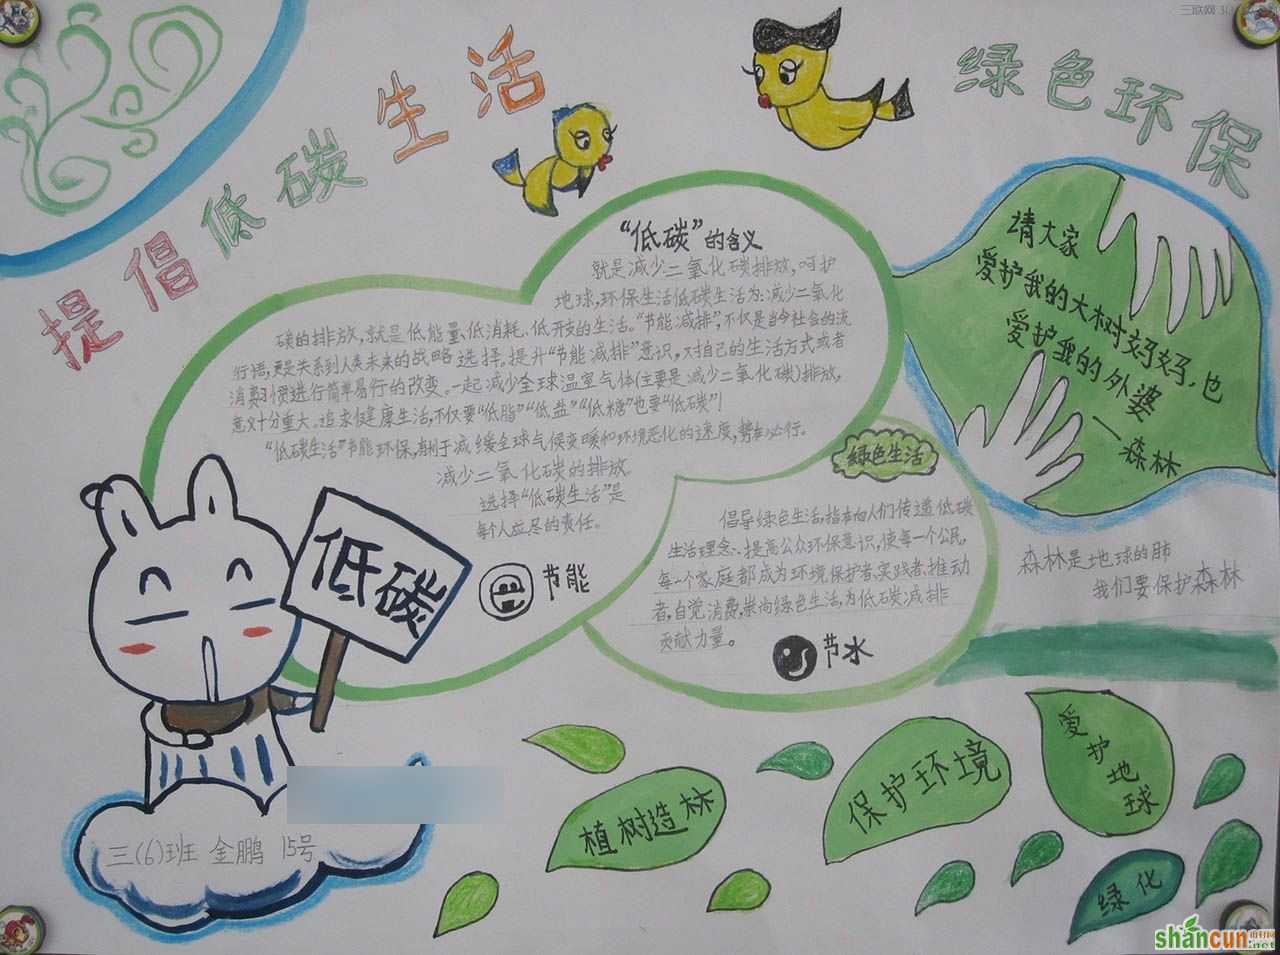 三联网 3LIAN.COM
提倡低碳生活
绿色环保
“低碳”的含义
就是减少二氧化碳排放,呵护
地球,环保生活低碳生活为:减少二氧化
碳的排放,就是低能量、低消耗、低开支的生活。“节能减排”,不仅是当今社会的流
行语,更是关系到人类未来的战略选择。提升“节能减排”意识,对自己的生活方式或者
消费习惯进行简单易行的改变。一起减少全球温室气体(主要是减少二氧化碳)排放,
意义十分重大。追求健康生活,不仅要“低脂”“低盐”“低糖”也要“低碳”!
“低碳生活”节能环保,有利于减缓全球气候变暖和环境恶化的速度,势在必行。
减少二氧化碳的排放
选择“低碳生活”是
每个人应尽的责任。
节能
低碳
请大家
爱护我的大树妈妈,也
爱护我的外婆
—森林
绿色生活
倡导绿色生活,指在向人们传递低碳
生活理念、提高公众环保意识,使每一个公民,
每一个家庭都成为环境保护者、实践者、推动
者,自觉消费,崇尚绿色生活,为低碳减排
贡献力量。
节水
森林是地球的肺
我们要保护森林
植树造林
保护环境
爱护地球
绿化
三(6)班 金鹏 15号
shancun
.net